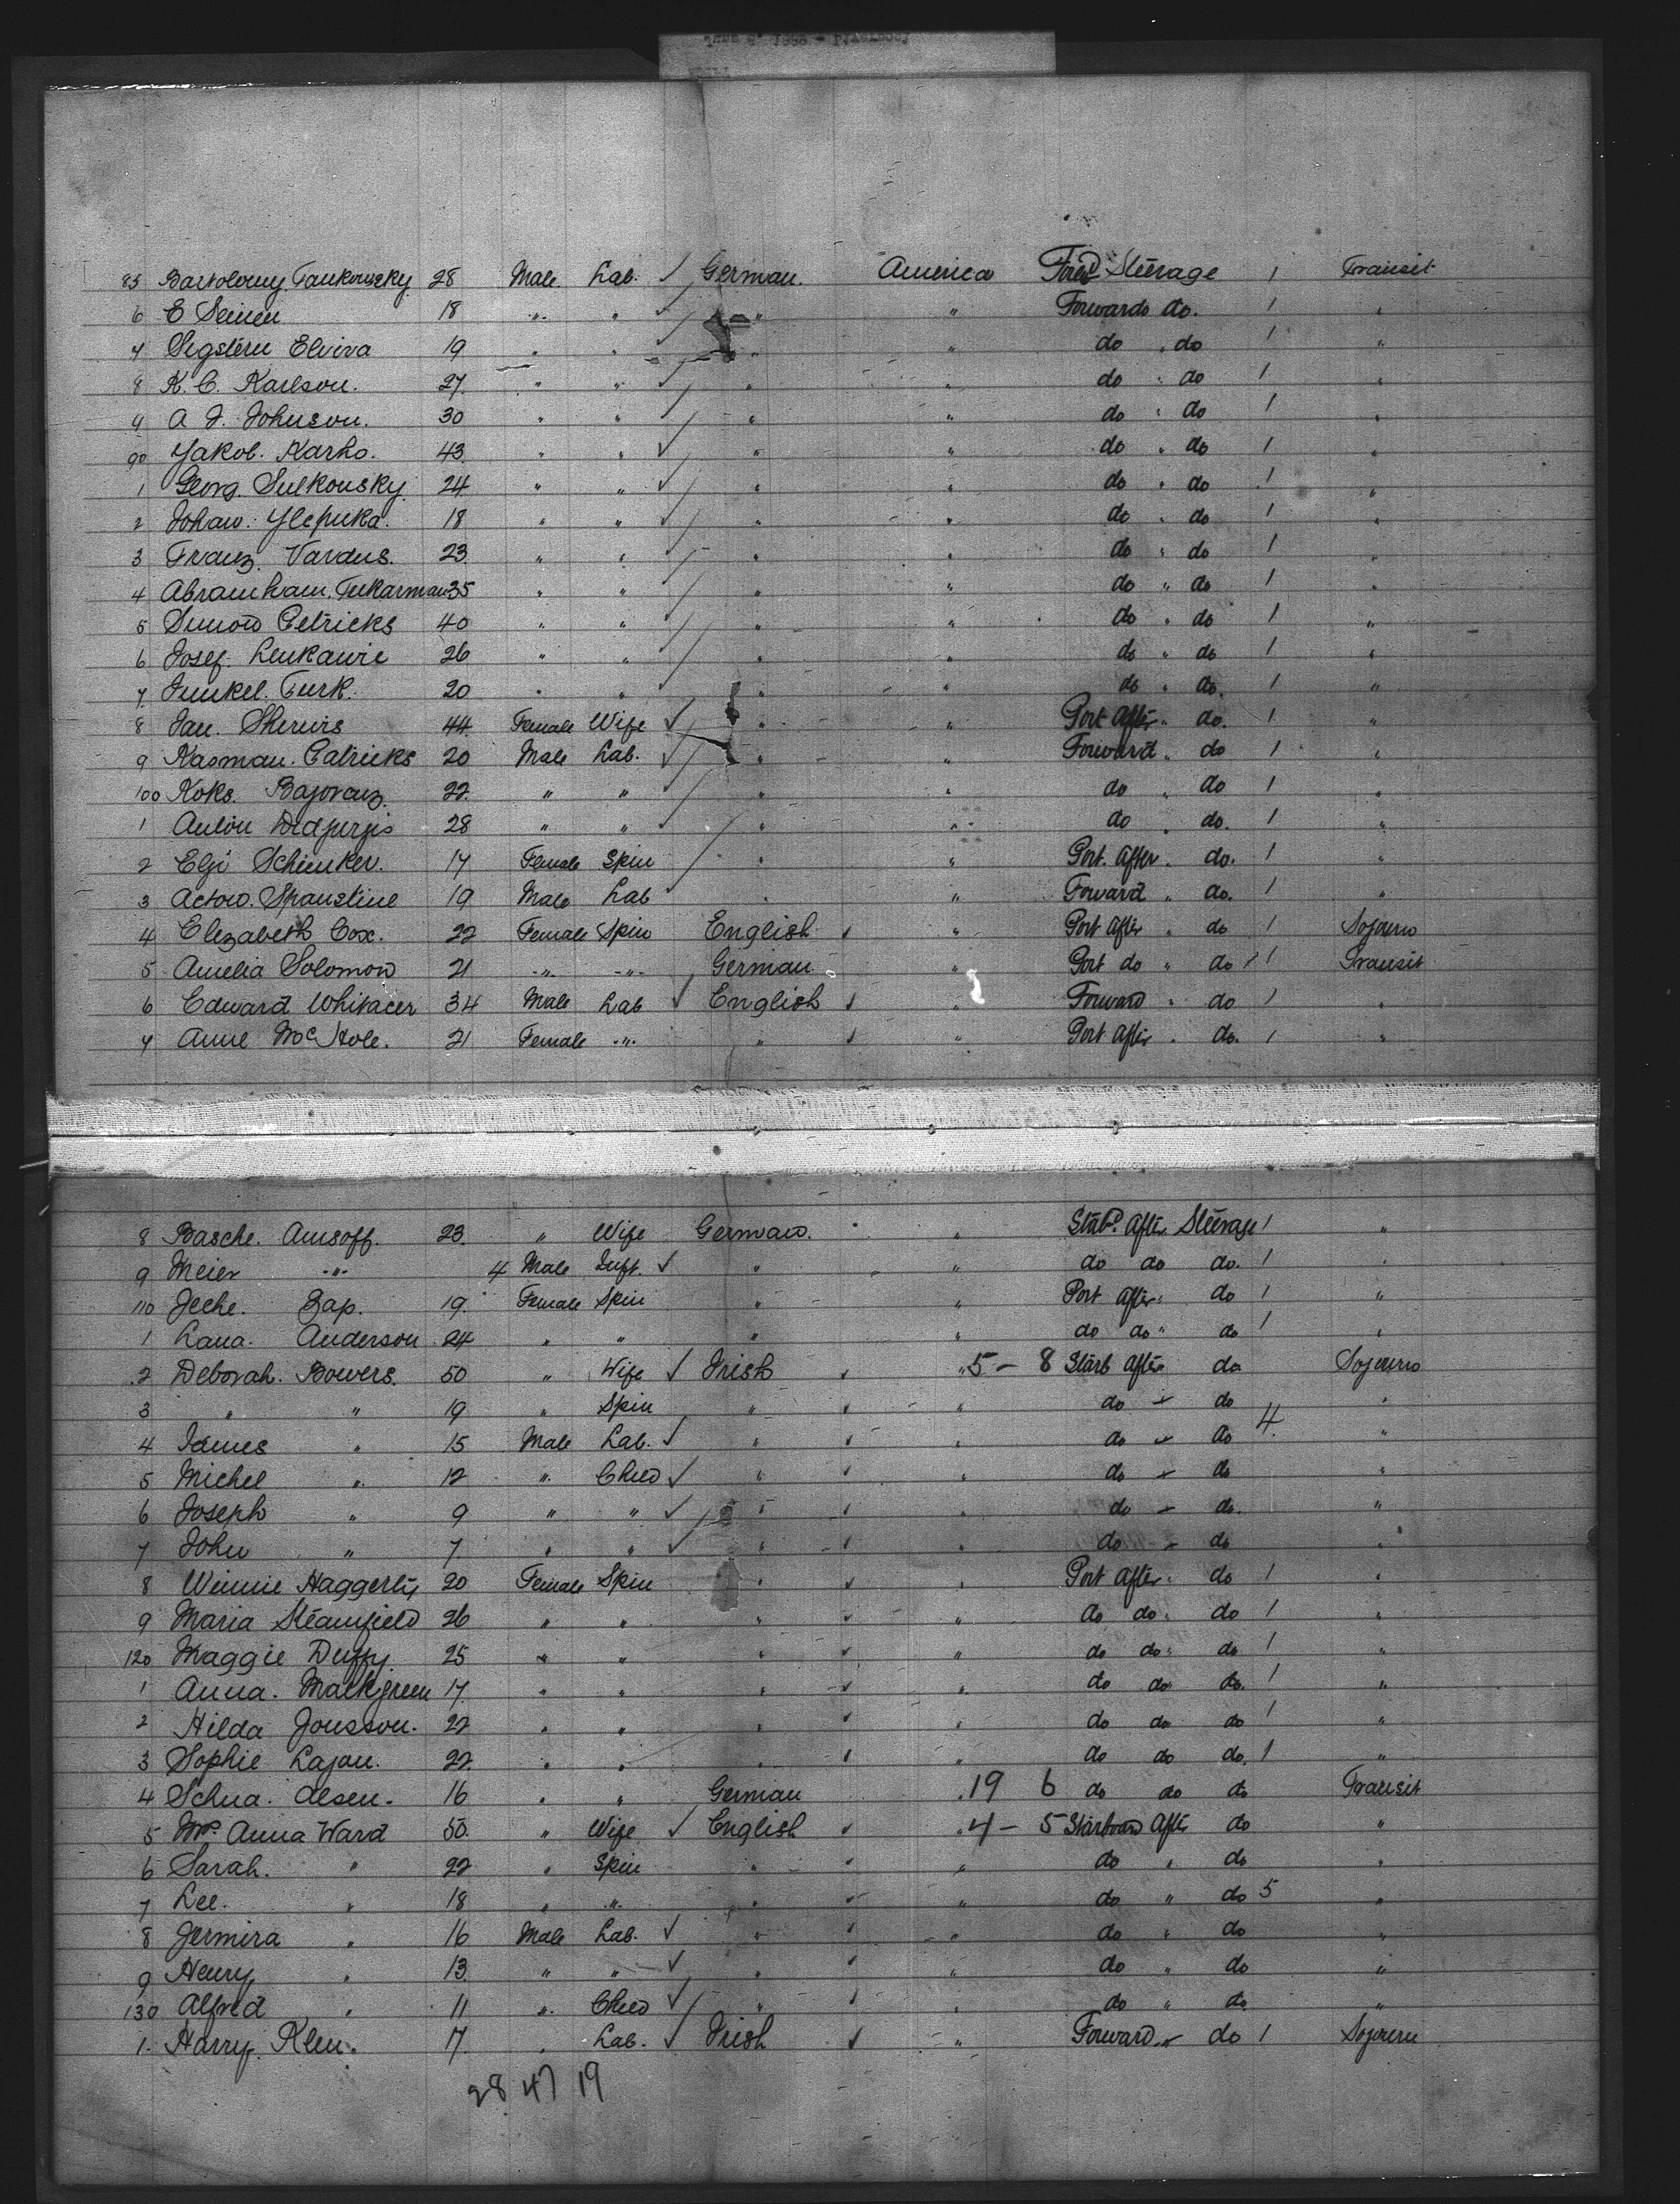 85 Bartolomy Tankowsky 28 Male. Lab. ✓ German. America Ford Steerage 1 Transit
6 E Seinen 18 " " ✓ " " Forwards do. 1 "
7 Sigstern Elvira 19 " " ✓ " do " do 1 "
8 K. C. Karlson. 27. " " ✓ " " do " do 1 "
9 A J. Johnson. 30 " " ✓ " " do " do 1 "
90 Yakob. Karho. 43. " " ✓ " " do " do 1 "
1 Georg. Sulkousky. 24 " " ✓ " " do " do 1 "
2 Johan. 18 " " ✓ " " do " do 1 "
3 Franz. Vardus. 23. " " ✓ " " do " do 1 "
4 Abramham. Tukarman 35 " " ✓ " " do " do 1 "
5 Petricks 40 " " ✓ " " do " do 1 "
6 Josef. Leukawic 26 " " ✓ " " do " do 1 "
7. Junkel. Turk. 20 " " ✓ " " do " do. 1 "
8 Jan. Sherwis 44. Female Wife ✓ " " Port After " do. 1 "
9 Kasman. Catricks 20 Male Lab. ✓ " " Forward " do 1 "
100 Koks. Bajoranz. 22. " " ✓ " " do " do 1 "
1 Anton Didjurgis 28 " " ✓ " " do " do. 1 "
2 Elji Schimker. 17 Female Spin " " Port. After " do. 1 "
3 Actow. Spanstine 19 Male Lab ✓ " " Forward " do. 1 "
4 Elizabeth Cox. 22 Female Spin English ✓ " Port After " do 1 Sojourn
5 Amelia Solomon 21 " " German. " Port do " do 1 Transit
6 Edward Whitacer 34 Male Lab ✓ English ✓ " Forward " do 1 "
7 Anne McHole. 21 Female " " ✓ " Port After " do. 1 "
8 Basche. Amsoff. 23. " Wife German. " " Starbd. After Steerage 1 "
9 Meier " 4 Male Inft. ✓ " " do do do. 1 "
110 Jeche. Zap. 19. Female Spin " " Port After " do 1 "
1 Lana. Anderson 24 " " " " do do " do 1 "
2 Deborah. Bowers. 50 " Wife ✓ Irish ✓ " 5 - 8 Starb After do Sojourn
3 " " 19 " Spin " ✓ " do " do "
4 James " 15 Male Lab. ✓ " ✓ " do " do 4. "
5 Michel " 12 " Child ✓ " ✓ " do " do "
6 Joseph " 9 " " ✓ " ✓ " do " do. "
7 John " 7. " " ✓ " ✓ " do " do "
8 Winnie Haggerty 20 Female Spin " ✓ " Port After " do 1 "
9 Maria Steamfield 26 " " " ✓ " do do " do 1 "
120 Maggie Duffy 25 " " " ✓ " do do " do 1 "
1 Anna. Malkgreen 17. " " " ✓ " do do do. 1 "
2 Hilda Jonsson. 22 " " " ✓ " do do do 1 "
3 Sophie Lajon. 22. " " " ✓ " do do do. 1 "
4 Schua. Olsen. 16 " " German " 19 6 do do do Transit
5 Mrs. Anna Ward 50. " Wife ✓ English ✓ " 4 - 5 Starboard After do "
6 Sarah. " 22 " Spin " ✓ " do " do "
7 Lee. " 18 " " " ✓ " do " do 5 "
8 Jermira " 16 Male Lab. ✓ " ✓ " do " do "
9 Henry " 13. " " ✓ " ✓ " do " do "
130 Alfred " 11 " Child ✓ " ✓ " do " do "
1. Harry. Klen. 17. " Lab. ✓ Irish ✓ " Forward " do 1 Sojourn
28 47 19